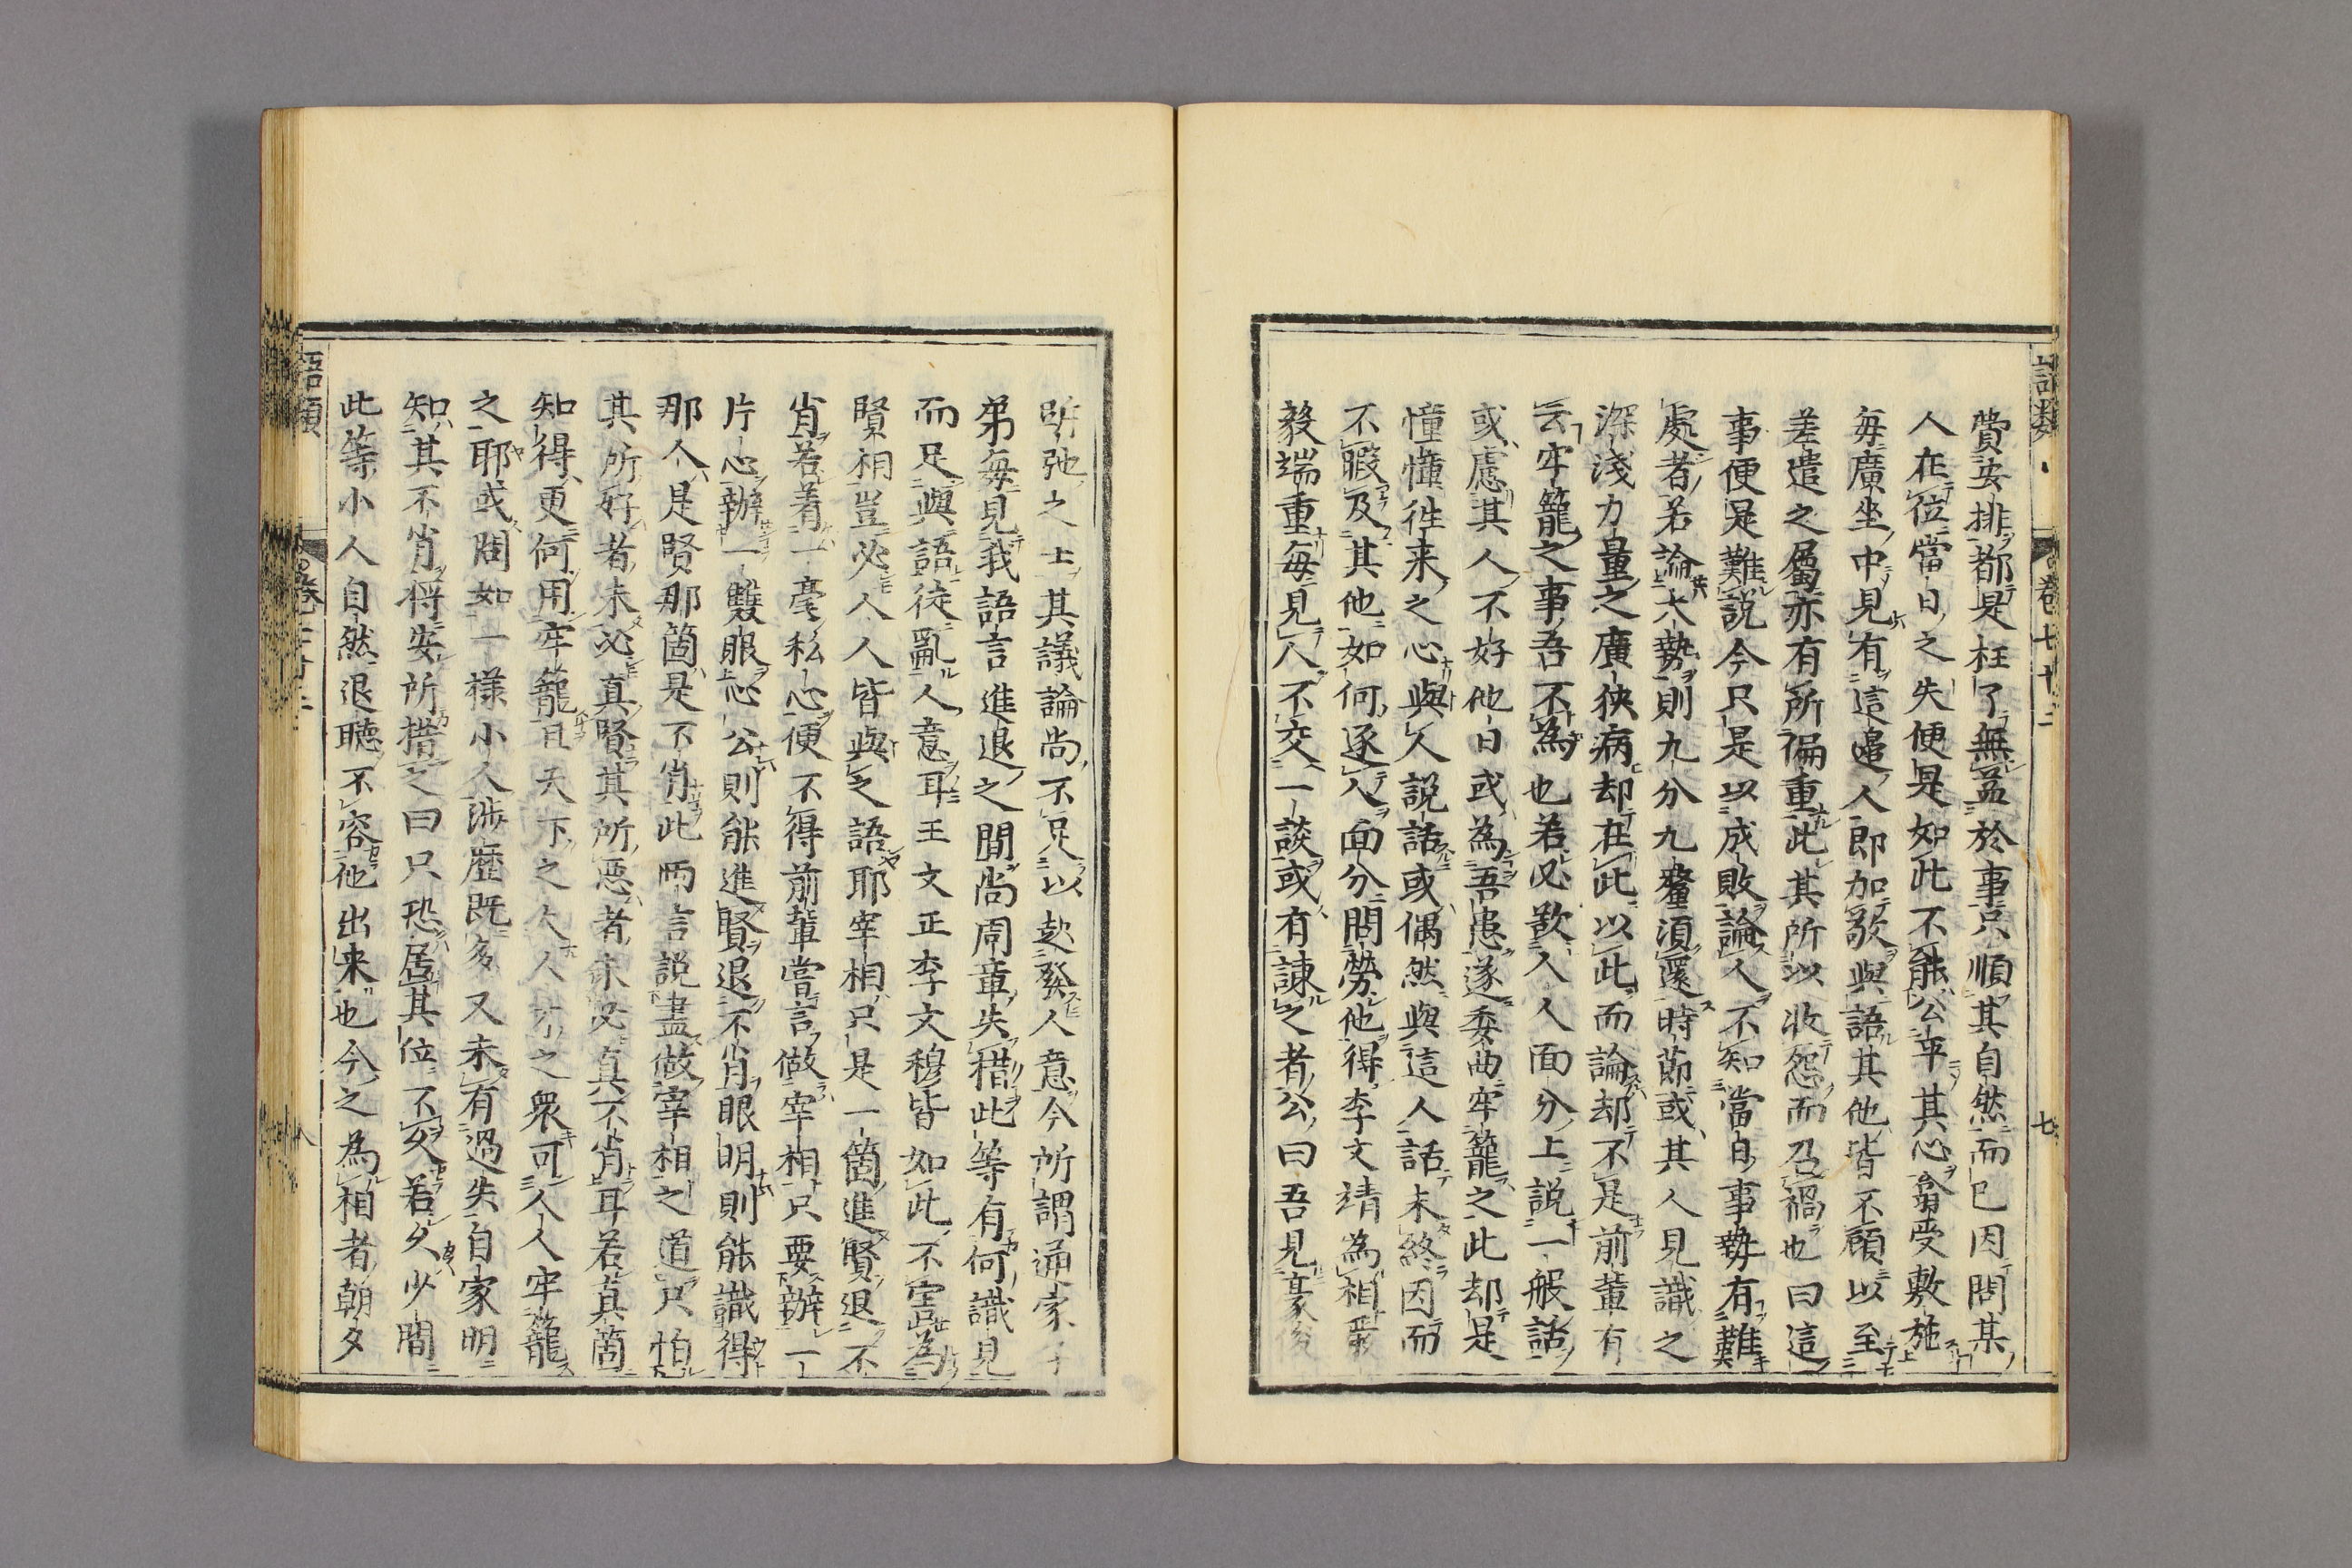 語類
卷七十二
七
費安排都是枉了無益於事只順其自然而已因問某
人在位當日之失便是如此不能公平其心翕受敷施
每廣坐中見有這邉人即加敬與語其他皆不顧以至
差遣之屬亦有所偏重此其所以收怨而召禍也曰這
事便是難說今只是以成敗論人不知當日事勢有難
處者若論大勢則九分九釐須還時節或其人見識之
深淺力量之廣狹病却在此以此而論却不是前軰有
云牢籠之事吾不為也若必欲人人面分上說一般話
或慮其人不好他日或為吾患遂委曲牢籠之此却是
憧憧徃来之心與人說話或偶然與這人話未終因而
不暇及其他如何逐人面分問勞他得李文靖為相嚴
毅端重每見人不交一談或有諫之者公曰吾見豪俊
跅弛之士其議論尚不足以起發人意今所謂通家子
弟每見我語言進退之間尚周章失措此等有何識見
而足與語徒亂人意耳王文正李文穆皆如此不害為
賢相豈必人人皆與之語耶宰相只是一箇進賢退不
肖若著一毫私心便不得前輩嘗言做宰相只要辦一
片心辦一雙眼心公則能進賢退不肖眼明則能識得
那人是賢那箇是不肖此兩言說盡做宰相之道只怕
其所好者未必真賢其所惡者未必真不肖耳若真箇
知得更何用牢籠且天下之大人才之衆可人人牢籠
之耶或問如一様小人渉歷既多又未有過失自家明
知其不肖將安所措之曰只恐居其位不久若久少間
此等小人自然退聽不容他出来也今之為相者朝夕
語類
八